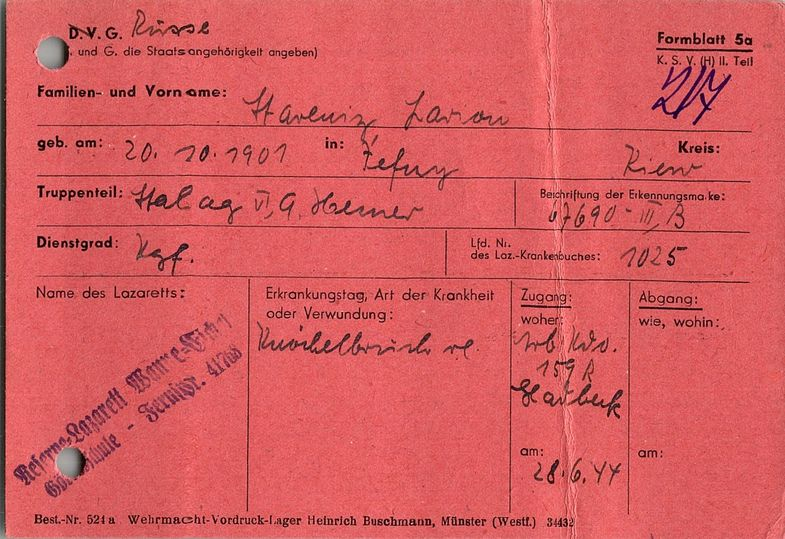 D. V. G. Russe
. und G. die Staatsangehörigkeit angeben)
Formblatt 5a
K. S. V. (H) II. Teil
217
Familien- und Vorname:
Larion
geb. am: 20. 10. 1901 in: Kreis: Kiew
Truppenteil: Stalag VI, A. Hemer
Beschriftung der Erkennungsmarke:
67690-III, B
Dienstgrad: Kgf.
Lfd. Nr.
des Laz.-Krankenbuches: 1025
Name des Lazaretts:
Reserve-Lazarett Wanne-Eickel
- Fernspr. 41766
Erkrankungstag, Art der Krankheit
oder Verwundung:
Knöchelbruch re.
Zugang:
woher:
Arb. Kdo.
159 R
Gladbeck
am:
28.6.44
Abgang:
wie, wohin:
am:
Best.-Nr. 521a Wehrmacht-Vordruck-Lager Heinrich Buschmann, Münster (Westf.) 34432